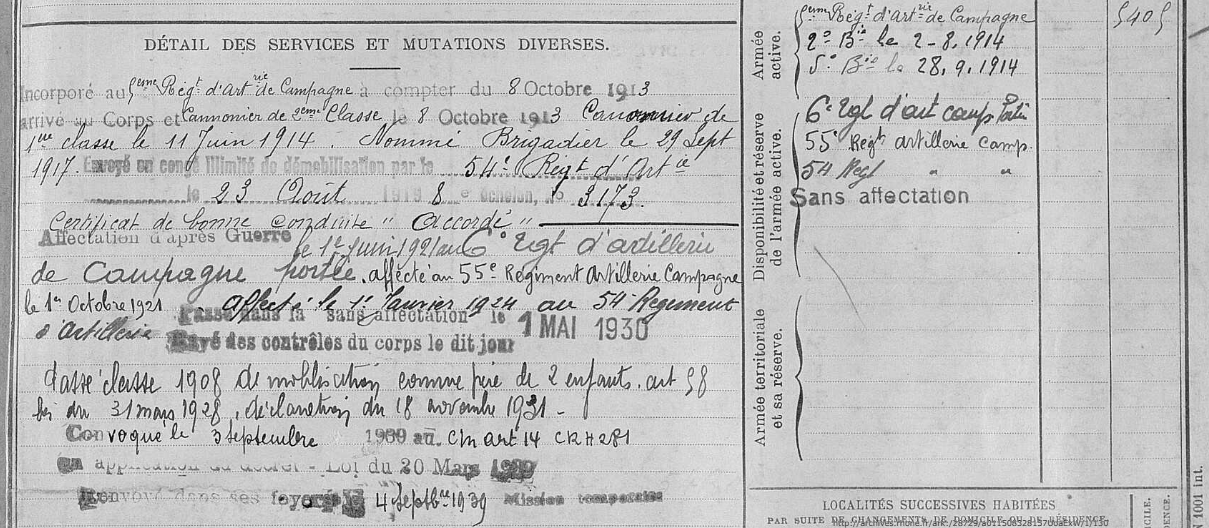 DÉTAIL DES SERVICES ET MUTATIONS DIVERSES.
Incorporé au 5eme Régt d'Artrie de Campagne à compter du 8 Octobre 1913
arrivé au Corps et Cannonier de 2eme Classe le 8 Octobre 1913 Canonnier de
1ere classe le 11 Juin 1914. Nommé Brigadier le 29 Sept
1917. Envoyé en congé illimité de démobilisation par le 54e Régt d'Artie
le 23 Août 1919 8e échelon, No 3173.
Certificat de bonne Conduite " Accordé "
Affectation d'après Guerre le 1er Juin 1921 au 6e Rgt d'artillerie
de Campagne portée. affecté au 55e Régiment Artillerie Campagne
le 1er Octobre 1921 affecté le 1er Janvier 1924 au 54 Régiment
d'Artillerie Passé dans la sans affectation le 1 MAI 1930
Rayé des contrôles du corps le dit jour
Passé classe 1908 de mobilisation comme père de 2 enfants. art 58
loi du 31 mars 1928, déclaration du 18 novembre 1931 -
Convoqué le 3 septembre 1939 au. Cm art 14
en application du décret - Loi du 20 Mars 1939
Renvoyé dans ses foyers le 4 Septbre 1939 Mission temporaire
Armée active.
5eme Régt d'Artrie de Campagne
2e Bie le 2-8.1914
5e Bie le 28.9.1914
Disponibilité et réserve de l'armée active.
6e Rgt d'art camp. portée
55e Régt artillerie camp.
54 Regt " "
Sans affectation
Armée territoriale et sa réserve.
5405
LOCALITÉS SUCCESSIVES HABITÉES
PAR SUITE DE CHANGEMENTS DE DOMICILE OU DE RÉSIDENCE.
N 1001 int.